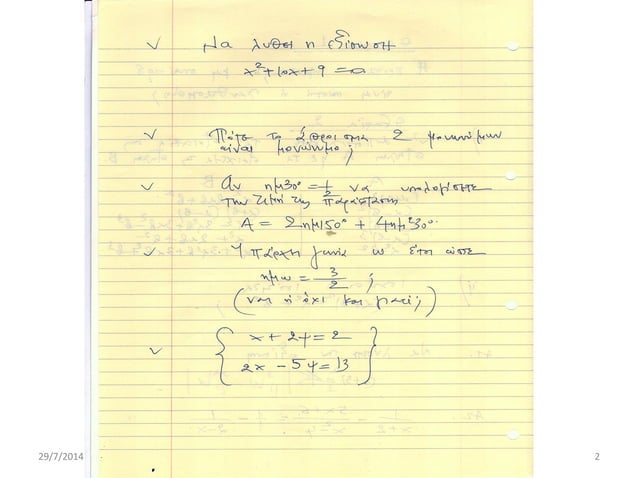 ✓ Να λυθεί η εξίσωση
x²+10x+9=0
✓ Πότε το άθροισμα 2 μονωνύμων
είναι μονώνυμο;
✓ Αν ημ30° = 1/2 να υπολογίσετε
την τιμή της παράστασης
A = 2ημ150° + 4ημ²30°
✓ Υπάρχει γωνία ω έτσι ώστε
ημω = 3/2 ;
(ναι ή όχι και γιατί;)
✓ { x + 2y = 2
2x - 5y = 13 }
29/7/2014
2